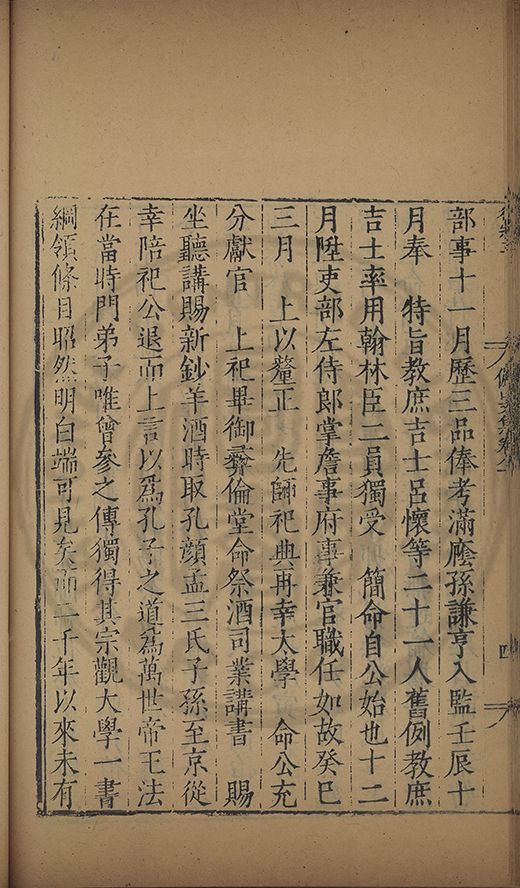 部事十一月歷三品俸考滿廕孫謙亨入監壬辰十
月奉　特旨教庶吉士呂懷等二十一人舊例教庶
吉士率用翰林臣二員獨受　簡命自公始也十二
月陞吏部左侍郎掌詹事府事兼官職任如故癸巳
三月　上以釐正　先師祀典再幸太學　命公充
分獻官　上祀畢御彞倫堂命祭酒司業講書　賜
坐聽講賜新鈔羊酒時取孔顏孟三氏子孫至京從
幸陪祀公退而上言以爲孔子之道爲萬世帝王法
在當時門弟子唯曾參之傳獨得其宗觀大學一書
綱領條目昭然明白端可見矣而二千年以來未有
四